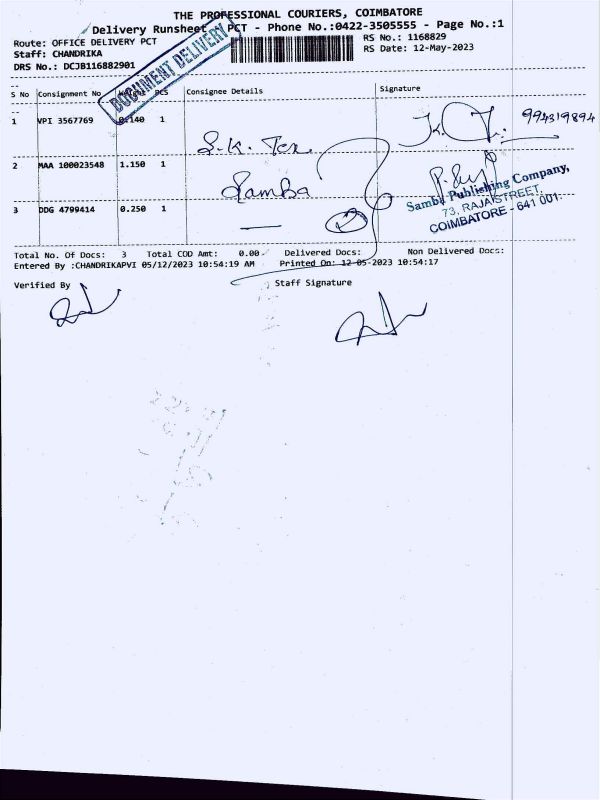 THE PROFESSIONAL COURIERS, COIMBATORE
Delivery Runsheet PCT - Phone No.:0422-3505555 - Page No.:1
Route: OFFICE DELIVERY PCT
RS No.: 1168829
Staff: CHANDRIKA
RS Date: 12-May-2023
DRS No.: DCJB116882901
DOCUMENT DELIVERY
S No Consignment No Weight PCS Consignee Details Signature
1 VPI 3567769 0.140 1
S.K. Tex.
2 MAA 100023548 1.150 1
Samba
Samba Publishing Company,
73, RAJA STREET,
COIMBATORE - 641 001.
3 DDG 4799414 0.250 1
Total No. Of Docs: 3 Total COD Amt: 0.00 Delivered Docs: Non Delivered Docs:
Entered By :CHANDRIKAPVI 05/12/2023 10:54:19 AM Printed On: 12-05-2023 10:54:17
Verified By Staff Signature